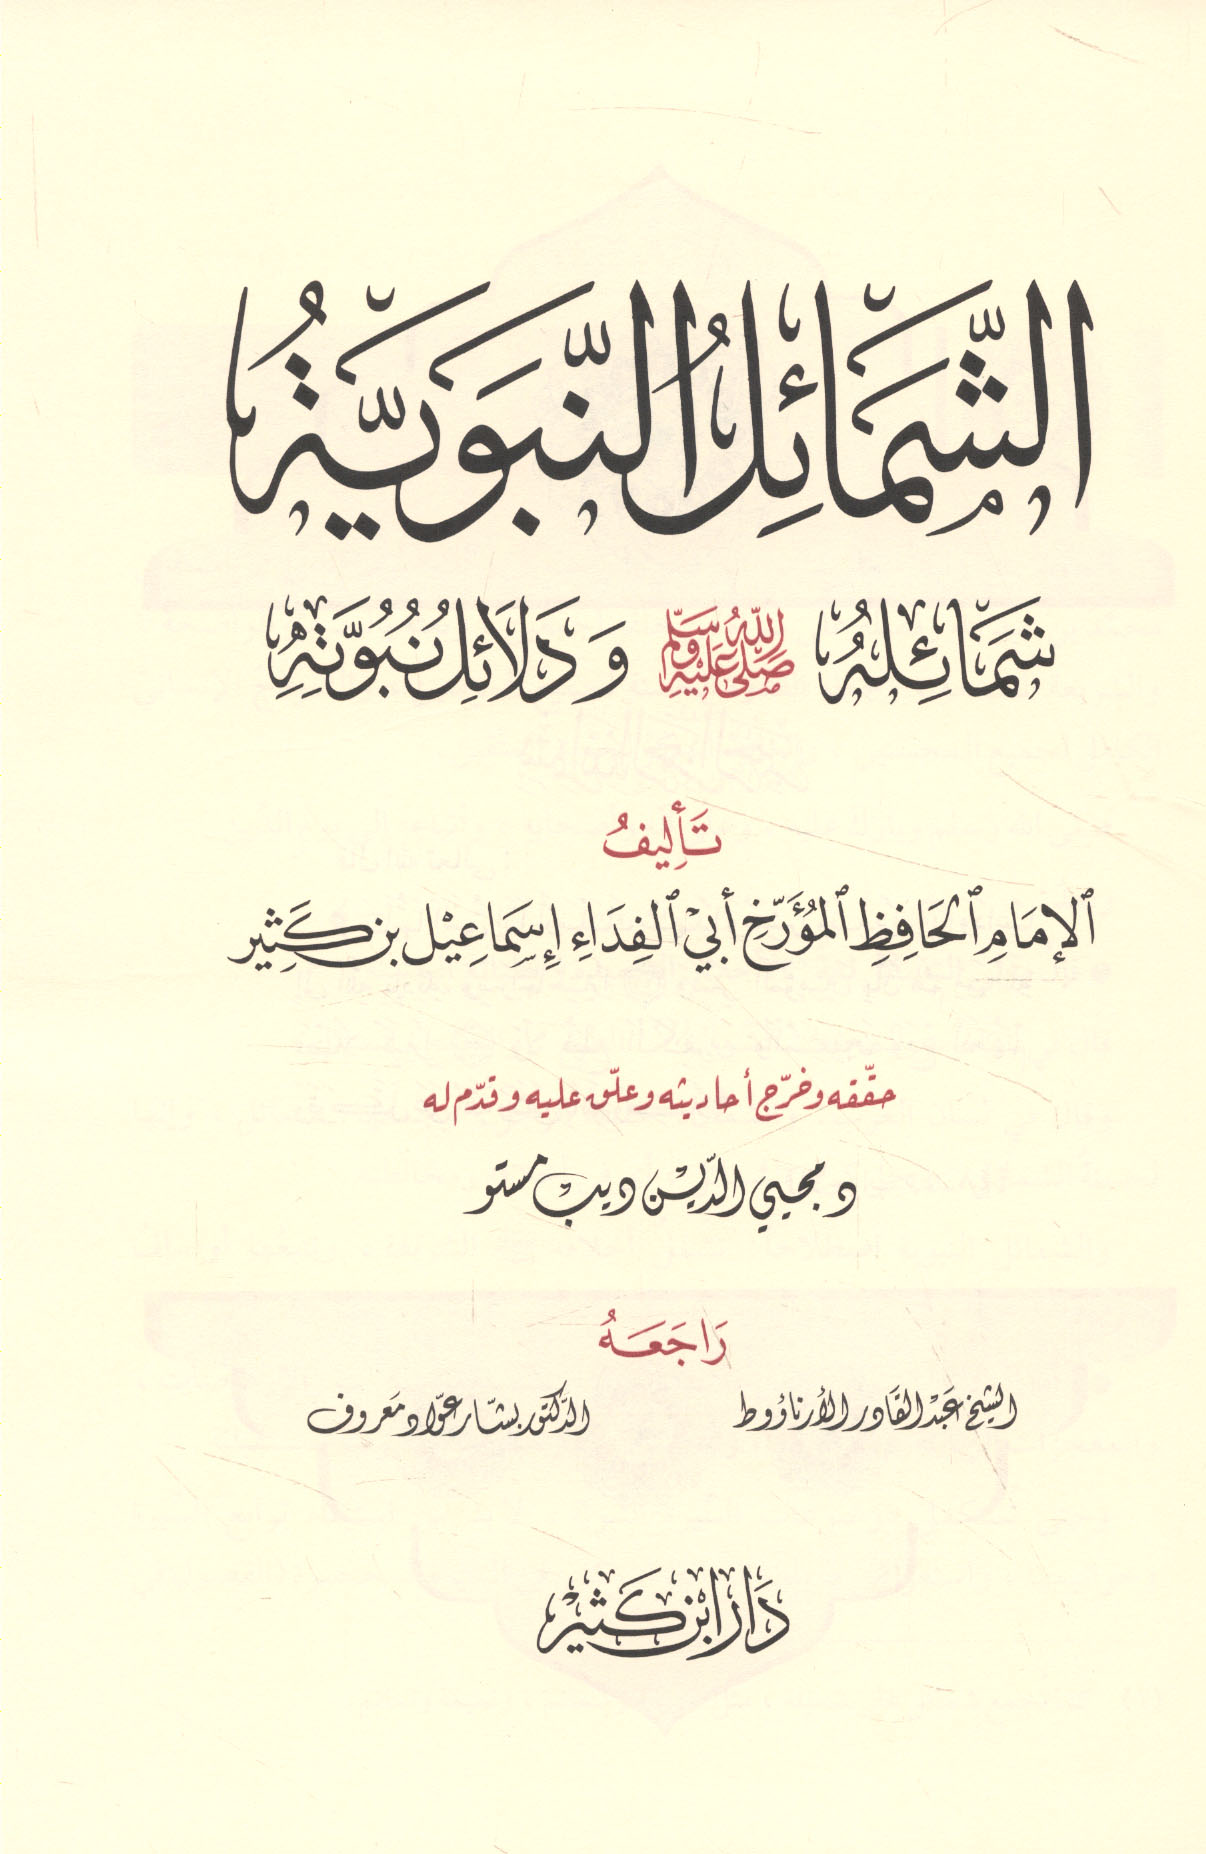 الشَّمَائِلُ النَّبَوِيَّةُ
شَمَائِلُهُ صَلَّى اللهُ عَلَيْهِ وَسَلَّم وَدَلَائِل نُبُوَّتِهِ
تَأليفُ
الإمَامِ الحَافِظِ المُؤَرِّخِ أبِي الفِدَاءِ إسْمَاعِيْل بن كَثِير
حقّقه وخرّج أحاديثه وعلّق عليه وقدّم له
د محيي الدّيْن ديبْ مستو
رَاجَعَهُ
الشيخ عَبْد القَادر الأرناؤوط الدّكتور بشّار عوّاد مَعروف
دَار ابْن كَثيْر